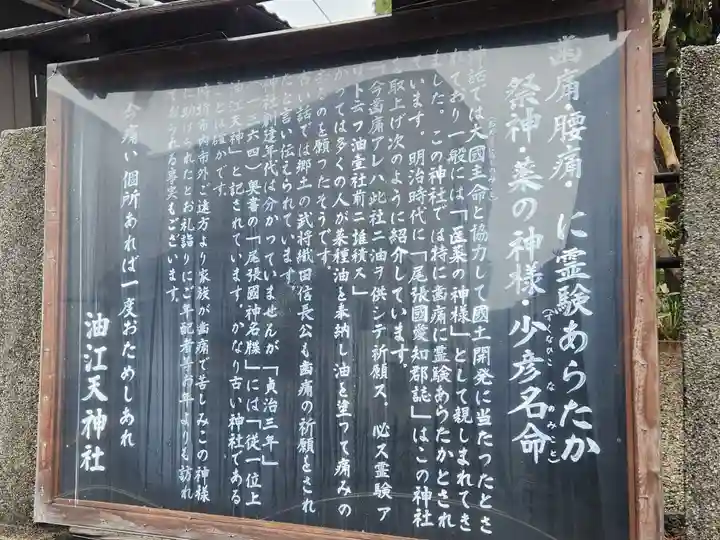 歯痛・腰痛・に霊験あらたか
祭神・薬の神様・少彦名命
(すくなひこなのみこと)
神話では大國主命と協力して國土開発に当たったとさ
れており一般には「医薬の神様」として親しまれてき
ました。この神社では特に歯痛に霊験あらたかとされ
ています。明治時代に「尾張國愛知郡誌」はこの神社
を取上げ次のように紹介しています。
歯痛アレハ此社ニ油ヲ供シテ祈願ス。必ス霊験ア
リト云フ油壺社前ニ堆積ス」
かつては多くの人が菜種油を奉納し油を塗って痛みの
を願ったそうです。
古い話では郷土の武将織田信長公も歯痛の祈願をされ
たと言い伝えられています。
神社創建年代は分かっていませんが「貞治三年」
(一三六四)奥書の「尾張國神名牒」には「従一位上
油江天神」と記されています。かなり古い神社である
ことは確かです。
市内市外ご遠方より家族が歯痛で苦しみこの神様
に助けられたとお礼詣りにご年配者等お年よりも訪れ
て居られる事実もございます。
痛い個所あれば一度おためしあれ
油江天神社